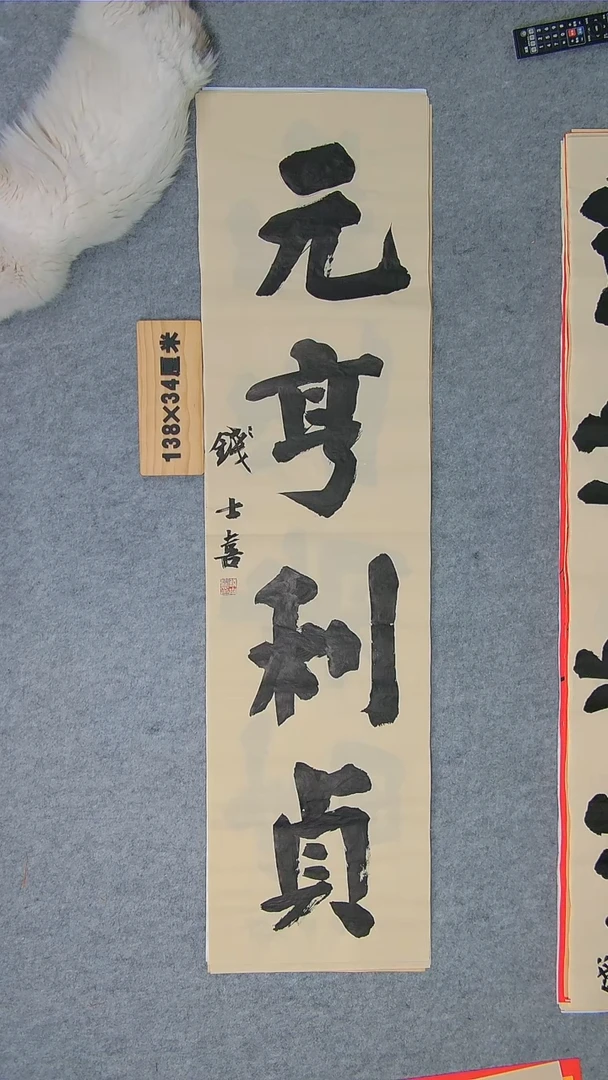 元亨利貞
錢士喜
138×34厘米